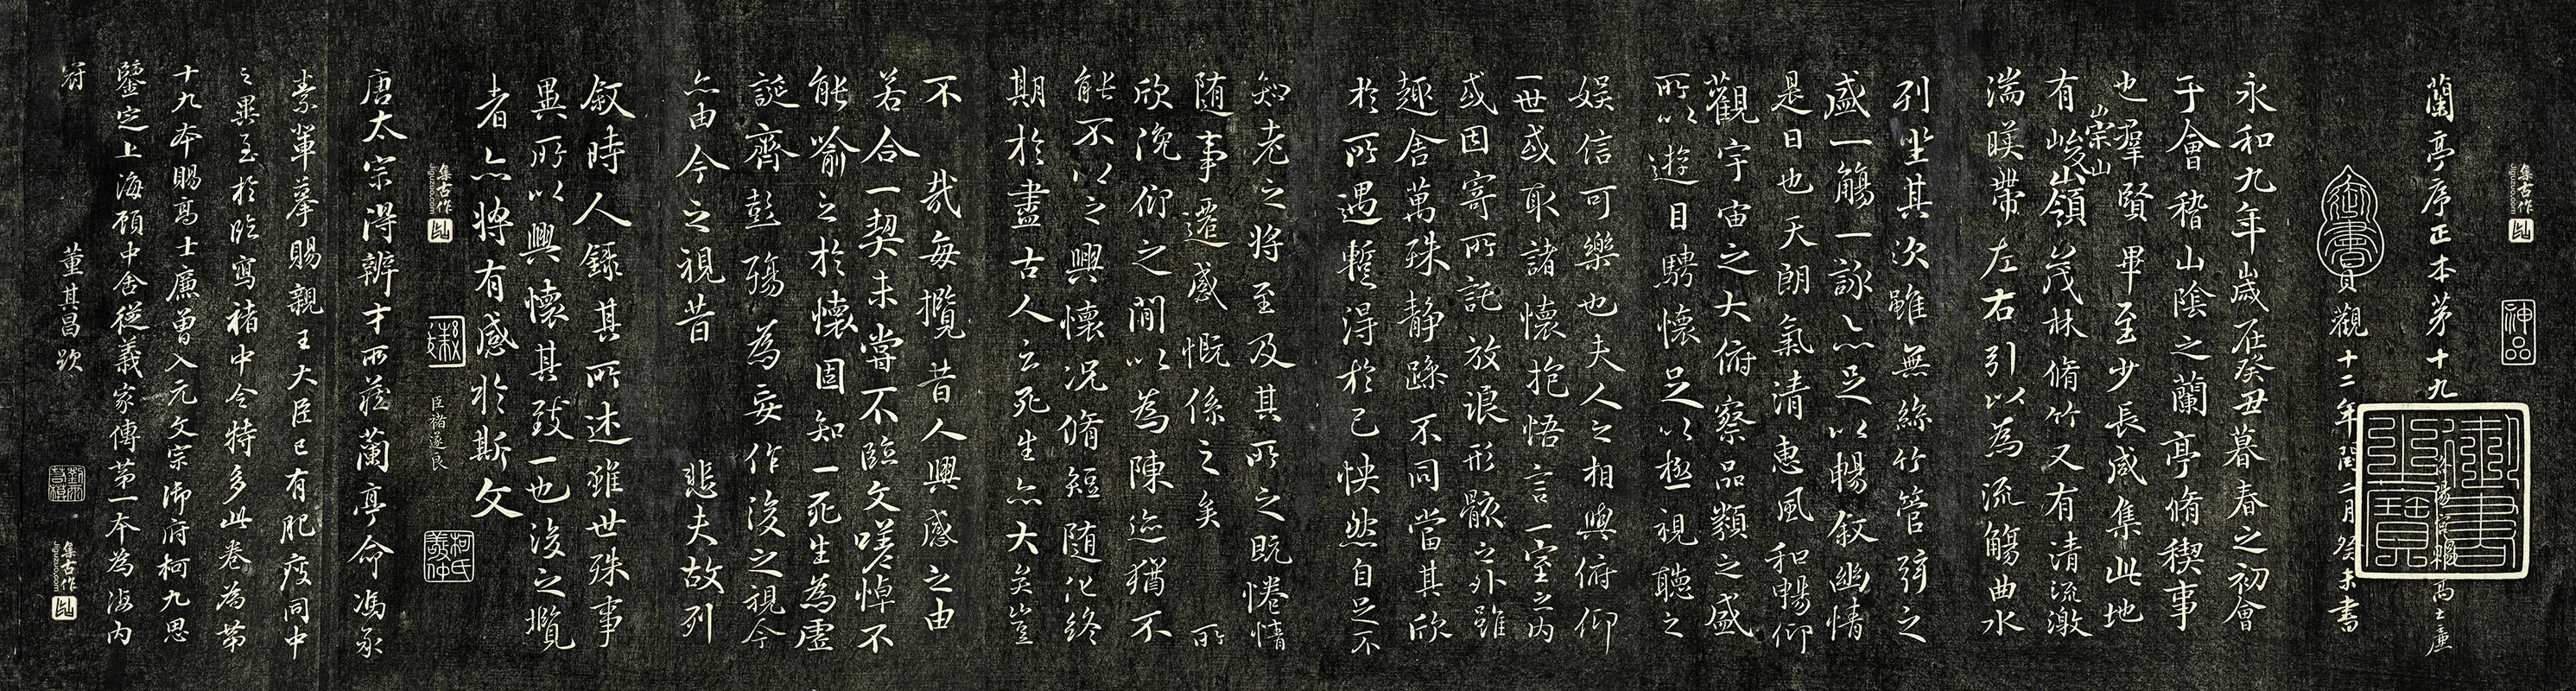 集古作
jiguzuo.com
神品
蘭亭序正本第十九
洛陽宮賜高士廉
御書
貞觀十二年閏二月癸未書
御書之寶
永和九年歲在癸丑暮春之初會
于會稽山陰之蘭亭脩稧事
也羣賢畢至少長咸集此地
崇山
有峻嶺茂林脩竹又有清流激
湍暎帶左右引以為流觴曲水
列坐其次雖無絲竹管弦之
盛一觴一詠亦足以暢敘幽情
是日也天朗氣清惠風和暢仰
觀宇宙之大俯察品類之盛
所以遊目騁懷足以極視聽之
娛信可樂也夫人之相與俯仰
一世或取諸懷抱悟言一室之內
或因寄所託放浪形骸之外雖
趣舍萬殊靜躁不同當其欣
於所遇蹔得於己怏然自足不
知老之將至及其所之既惓情
隨事遷感慨係之矣 所
欣俛仰之間以為陳迹猶不
能不以之興懷況脩短隨化終
期於盡古人云死生亦大矣豈
不 哉每攬昔人興感之由
若合一契未嘗不臨文嗟悼不
能喻之於懷固知一死生為虛
誕齊彭殤為妄作後之視今
亦由今之視昔 悲夫故列
敘時人錄其所述雖世殊事
異所以興懷其致一也後之攬
者亦將有感於斯文
集古作
jiguzuo.com
臣褚遂良
柯氏敬仲
唐太宗得辨才所藏蘭亭命馮承
素輩摹賜親王大臣已有肥瘦同中
之異至於臨寫褚中令特多此卷為第
十九本賜高士廉曾入元文宗御府柯九思
鑒定上海顧中舍從義家傳第一本為海內
冠 董其昌跋
集古作
jiguzuo.com